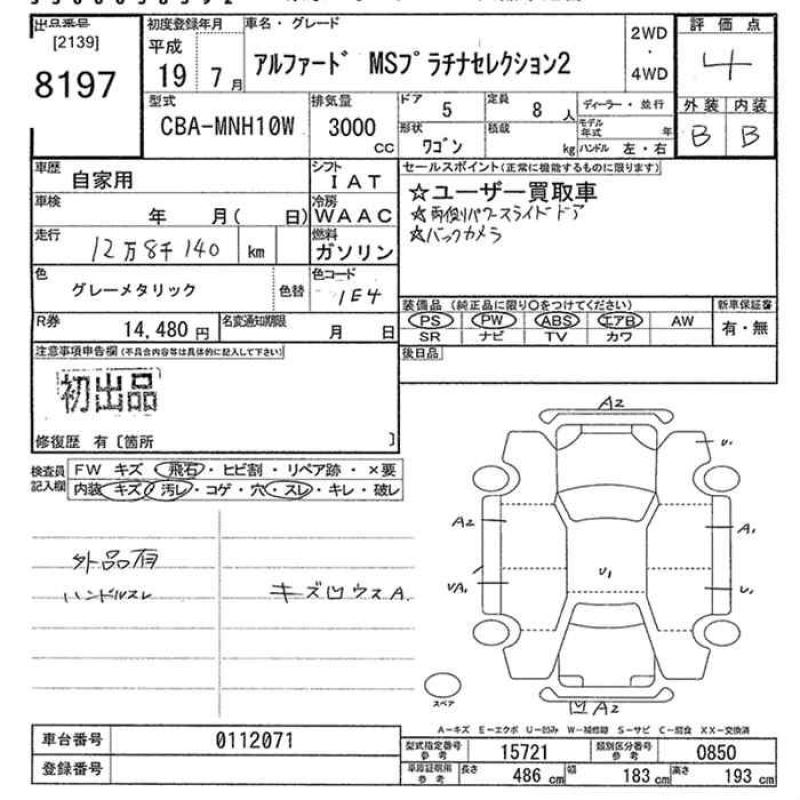 出品番号
[2139]
8197
初度登録年月
平成
19 7月
車名・グレード
アルファード MSプラチナセレクション2
2WD
・
4WD
評価点
4
外装 内装
B B
型式
CBA-MNH10W
排気量
3000
cc
ドア
5
定員
8 人
形状
ワゴン
積載
kg
ディーラー・並行
モデル
年式 年
ハンドル 左・右
車歴
自家用
シフト
IAT
車検
年 月( 日)
冷房
WAAC
走行
12万8千140 km
燃料
ガソリン
色
グレーメタリック
色替
色コード
1E4
R券
14,480 円
名変通知期限
月 日
セールスポイント(正常に機能するものに限ります)
☆ユーザー買取車
☆両側パワースライドドア
☆バックカメラ
装備品(純正品に限り○をつけてください)
PS PW ABS エアB AW
SR ナビ TV カワ
新車保証書
有・無
後日品
注意事項申告欄(不具合内容等は具体的に記入して下さい)
初出品
修復歴 有〔箇所 〕
検査員
記入欄
FW キズ・飛石・ヒビ割・リペア跡・×要
内装 キズ・汚レ・コゲ・穴・スレ・キレ・破レ
外品有
ハンドルスレ
キズ凹ウスA.
A2
U.
A2
A.
VA,
U1
U.
スペア
凹A2
A−キズ E−エクボ U−凹み W−補修跡 S−サビ C−腐食 XX−交換済
車台番号
0112071
登録番号
型式指定番号
参考
15721
類別区分番号
参考
0850
車庫証明用
参考
長さ
486 cm
幅
183 cm
高さ
193 cm